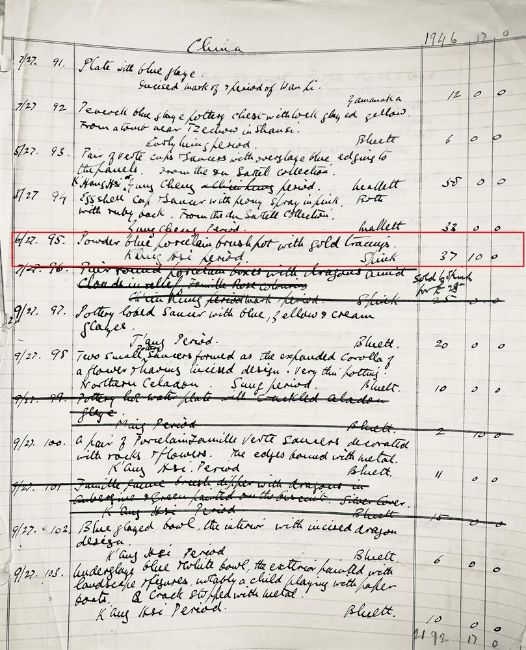 China
1946 17 0
7/27. 91. Plate with blue glaze.
Incised mark of & period of Wan Li.
Yamanaka 12 0 0
7/27 92 Peacock blue glaze pottery chest with lock glazed yellow.
From a tomb near Tzechow in Shansi.
Early Ming period. Bluett 6 0 0
5/27. 93. Pair of verte cups & saucers with overglaze blue, edging to
the panels. From the du Sartell collection.
K'Hang Hsi period. Mallett 55 0 0
5/27 94 Eggshell Cup & Saucer with peony spray in pink. Both
with ruby back. From the du Sartell Collection.
Yung Cheng Period. Mallett 33 0 0
6/27. 95. Powder blue porcelain brushpot with gold tracings.
K'ang Hsi period. Spink 37 10 0
7/27 96. Pair round porcelain boxes with dragons amid
clouds in relief. Famille Rose colours
period. Spink 25 0 0
Sold by Spink
for £
9/27. 97. Pottery lobed Saucer with blue, yellow & cream
glazes.
T'ang Period. Bluett. 20 0 0
9/27. 98 Two small Pottery Saucers formed as the expanded Corolla of
a flower & having incised design. Very thin potting.
Northern Celadon. Sung period. Bluett. 10 0 0
9/27. 99. Pottery hot water plate with crackled celadon
glaze.
Ming Period Bluett. 2 10 0
9/27. 100. A pair of Porcelain Famille Verte saucers decorated
with rocks & flowers. The edges bound with metal.
K'Ang Hsi Period Bluett. 11 0 0
9/27. 101 Famille Jaune brush dipper with dragons in
aubergine & green painted on the biscuit. Silver Cover.
K'Ang Hsi Period Bluett 15 0 0
9/27. 102. Blue glazed bowl, the interior with incised dragon
design.
K'ang Hsi Period Bluett. 6 0 0
9/27. 103. Underglaze blue & white bowl, the exterior painted with
landscape & figures, notably a child playing with paper
boats. A Crack stopped with metal.
K'ang Hsi Period. Bluett. 10 0 0
2192 17 0